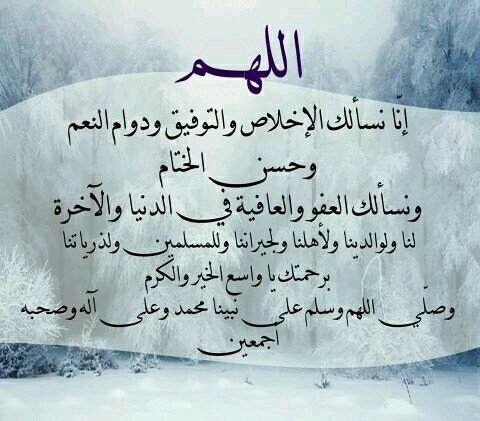 اللهم
إنّا نسألك الإخلاص والتوفيق ودوام النعم
وحسن الختام
ونسألك العفو والعافية في الدنيا والآخرة
لنا ولوالدينا ولأهلنا ولجيراننا وللمسلمين ولذرياتنا
برحمتك يا واسع الخير والكرم
وصلّي اللهم وسلم على نبينا محمد وعلى آله وصحبه
أجمعين